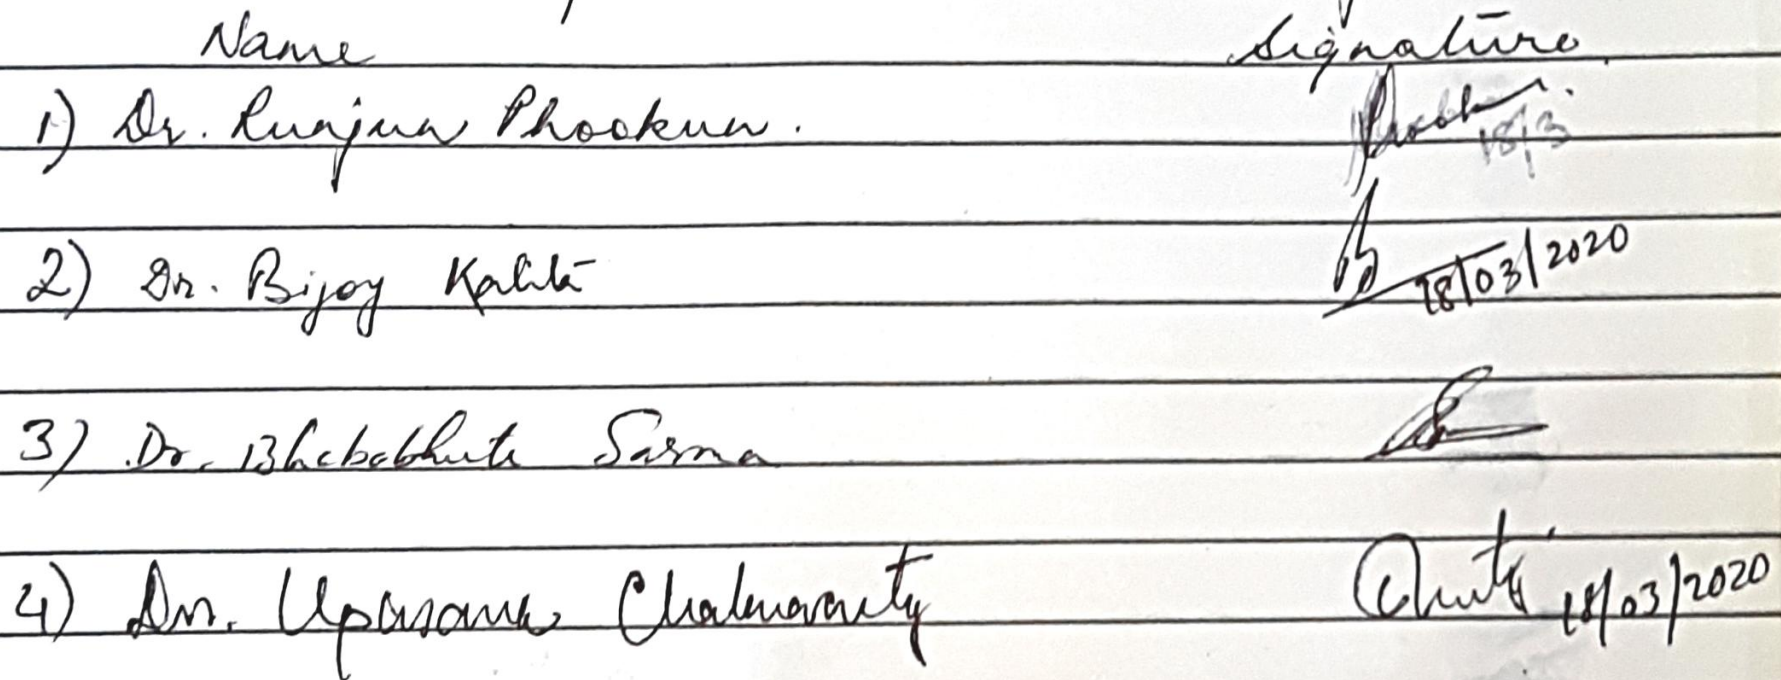 Name Signature
1) Dr. Runjun Phookun. 18/3
2) Dr. Bijoy Kalita 18/03/2020
3) Dr. Bhababhuti Sarma
4) Dr. Upasana Chakravarty 18/03/2020